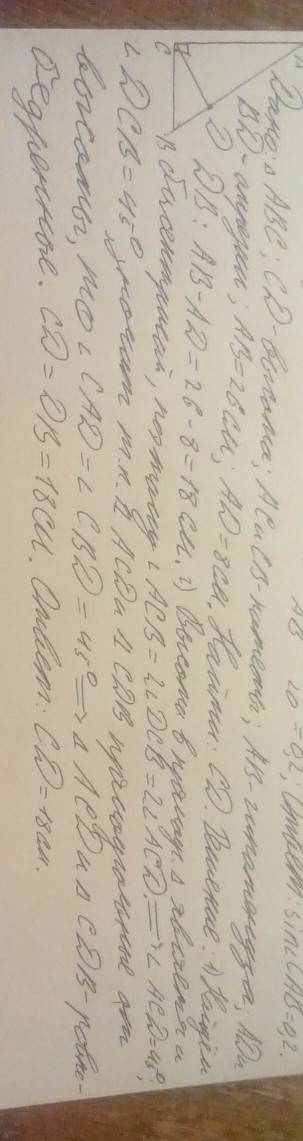 AB 10 = 82; Ответ: sin∠CAB=0,2.
A
D
C
B
Дано: △ABC; CD-высота; AC и CB-катеты; AB-гипотенуза; AD и
BD- ; AB=26см; AD=8см. Найти: CD. Решение: 1) Найдём
DB: AB-AD=26-8=18см. 2) Высота в прямоуг. △ является и
биссектрисой, поэтому ∠ACB=2∠DCB=2∠ACD. => ∠ACD=45°;
∠DCB=45°, значит т.к. △ACD и △CDB прямоугольные от
высоты, то ∠CAD=∠CBD=45° => △ACD и △CDB-равно-
бедренные. CD=DB=18см. Ответ: CD=18см.